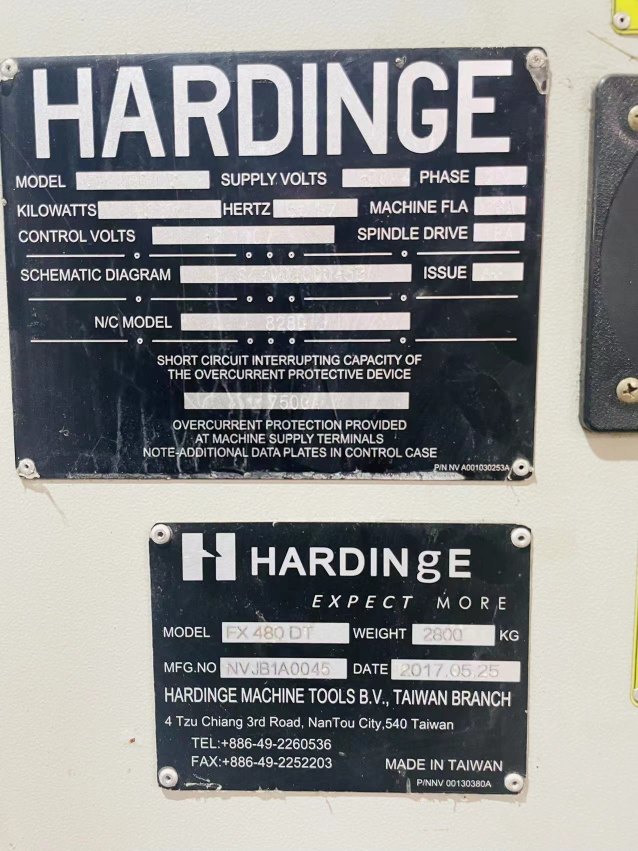 HARDINGE
MODEL SUPPLY VOLTS PHASE
KILOWATTS HERTZ MACHINE FLA
CONTROL VOLTS SPINDLE DRIVE
SCHEMATIC DIAGRAM ISSUE
N/C MODEL
SHORT CIRCUIT INTERRUPTING CAPACITY OF
THE OVERCURRENT PROTECTIVE DEVICE
OVERCURRENT PROTECTION PROVIDED
AT MACHINE SUPPLY TERMINALS
NOTE-ADDITIONAL DATA PLATES IN CONTROL CASE
P/N NV A001030253A
HARDINgE
EXPECT MORE
MODEL FX 480 DT WEIGHT 2800 KG
MFG.NO NVJB1A0045 DATE 2017.05.25
HARDINGE MACHINE TOOLS B.V., TAIWAN BRANCH
4 Tzu Chiang 3rd Road, NanTou City,540 Taiwan
TEL:+886-49-2260536
FAX:+886-49-2252203 MADE IN TAIWAN
P/NNV 00130380A